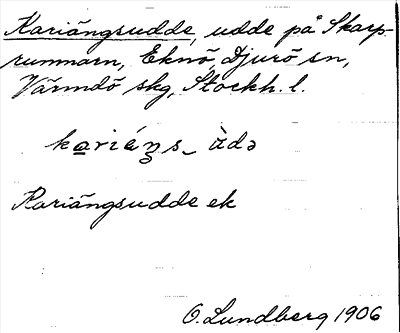 Kariängsudde, udde på Skarp-
rummarn, Eknö, Djurö sn,
Värmdö skg, Stockh. l.
Kariängsudde ek
O. Lundberg 1906